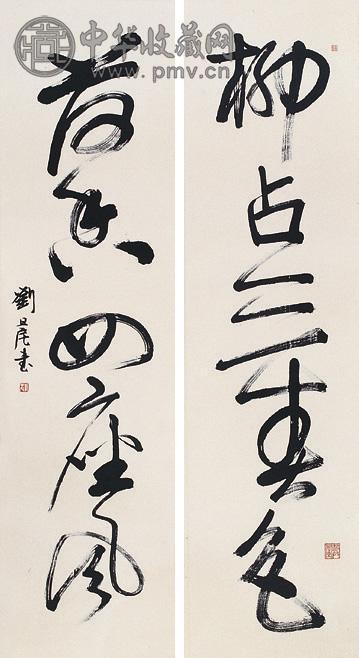 中华收藏网
www.pmv.cn
柳占三春色
荷香四座风
劉旦宅書